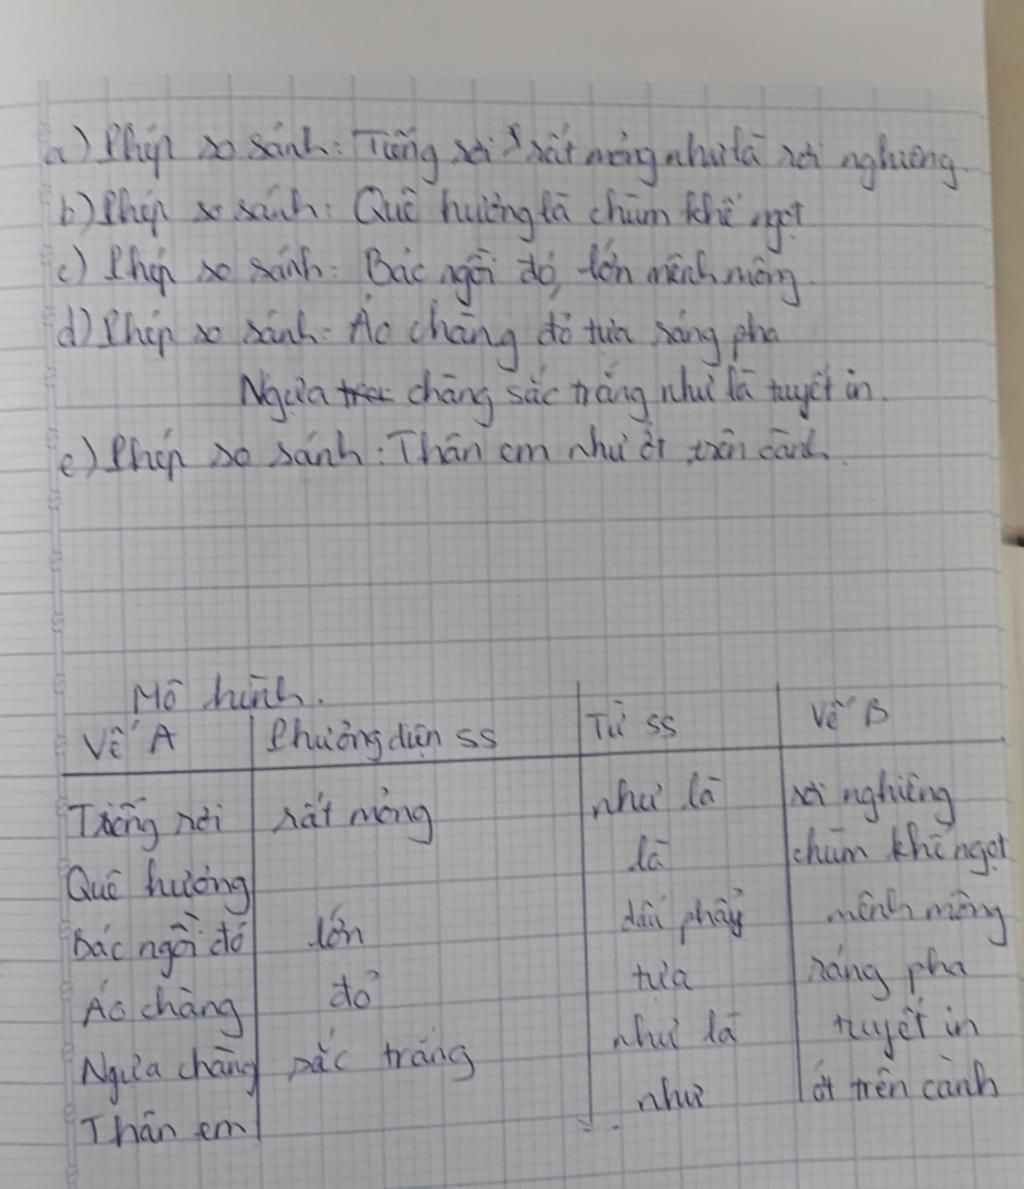 a) Phép so sánh: Tiếng rơi rất mỏng như là rơi nghiêng.
b) Phép so sánh: Quê hương là chùm khế ngọt
c) Phép so sánh: Bác ngồi đó, lớn mênh mông
d) Phép so sánh: Áo chàng đỏ tựa ráng pha
Ngựa chàng sắc trắng như là tuyết in.
e) Phép so sánh: Thân em như ớt trên cành.
Mô hình.
Vế A Phương diện SS Từ SS Vế B
Tiếng rơi rất mỏng như là rơi nghiêng
Quê hương là chùm khế ngọt
Bác ngồi đó lớn dấu phẩy mênh mông
Áo chàng đỏ tựa ráng pha
Ngựa chàng sắc trắng như là tuyết in
Thân em như ớt trên cành